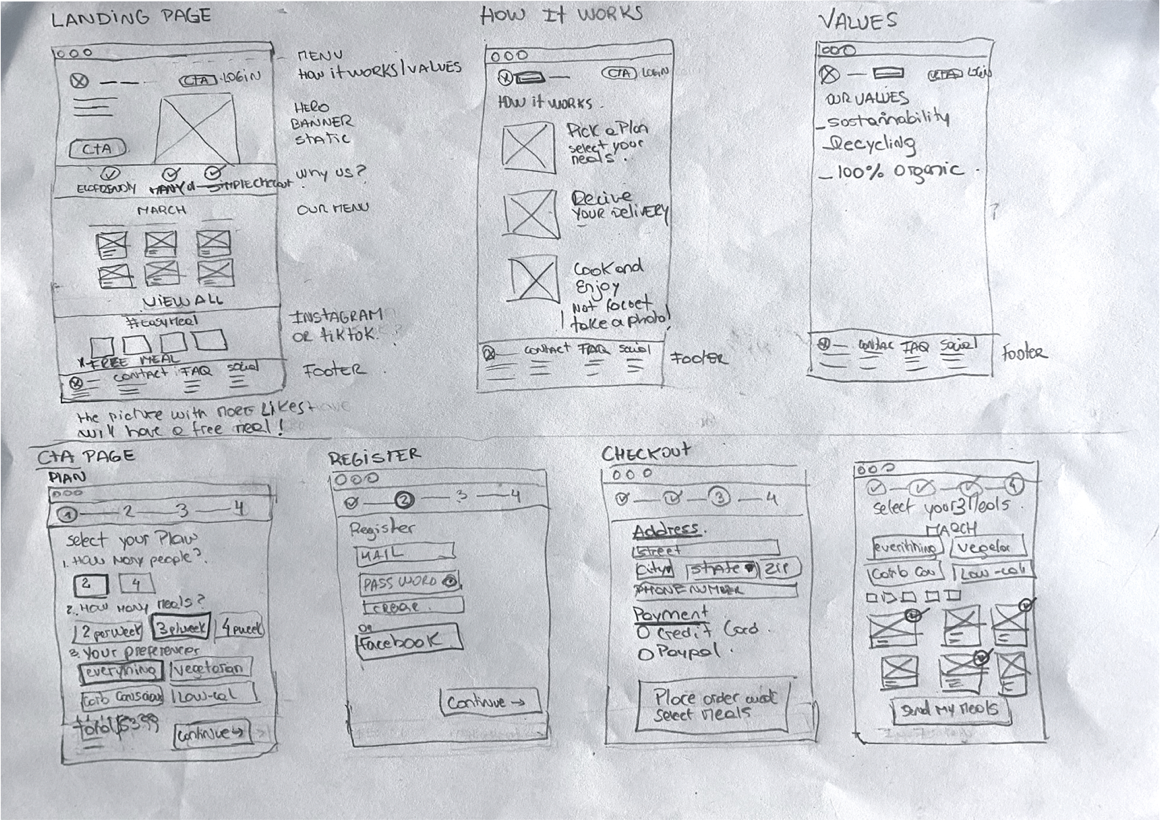 LANDING PAGE
CTA LOGIN
CTA
MARCH
VIEW ALL
#EasyMeal
*FREE MEAL
CONTACT FAQ Social
MENU
HOW it WORKS/VALUES
HERO
BANNER
STATIC
Why us?
OUR MENU
INSTAGRAM
OR tiktok.
FOOTER
the picture with
will have a free meal!
HOW It WORKS
CTA LOGIN
HOW it WORKS.
Pick a Plan
select your
meals.
Recive
YOUR DELIVERY
Cook and
Enjoy
Not forget
! take a photo!
contact FAQ Social
Footer
VALUES
CTA LOGIN
OUR VALUES
- Sostainability
- Recycling
- 100% Organic.
?
contac FAQ Social
Footer
CTA PAGE
PLAN
1 2 3 4
Select your Plan
1. How many people?
2 4
2. How many meals?
2 per week 3 p/week 4 p week
3. Your preferences
everything vegetarian
Carb Conscious Low-cal
total
continue →
REGISTER
2 3 4
Register
MAIL
PASSWORD
create.
OR
facebook
Continue →
CHECKOUT
3 4
Address.
street
City state ZIP
PHONE NUMBER
Payment
Credit Card.
Paypal.
Place order and
select meals
4
select your 3 Meals.
MARCH
everithing
Carb Con Low-cal
Send My Meals